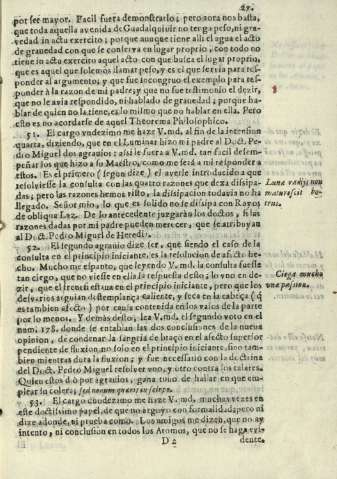 27.
por ser mayor. Facil fuera demostrarlo; pero aora nos basta,
que toda aquella avenida de Guadalquivir no tenga peso, ni gra-
vedad in actu exercito; porque aunque tiene alli el agua el acto
de gravedad con que se conserva en lugar proprio, con todo no
tiene in actu exercito aquel acto con que busca el lugar proprio,
que es aquel que solemos llamar peso, y es el que servia para res-
ponder al argumento, y fue lo que congruo el exemplo para res-
ponder à la razon de mi padre; y que no fue testimonio el dezir,
que no le avia respondido, ni hablado de gravedad; porque ha-
blar de quien no la tiene, es lo mismo que no hablar en ella. Pero
esto es no acordarse de aquel Theorema Philosophico.
51. El cargo undezimo me haze V.md. al fin de la intension
quarta, diziendo, que en el Luminar hizo mi padre al Doct. Pe-
dro Miguel dos agravios: assi le fuera à V.md. tan facil desem-
peñar los que hizo à su Maestro, como me será à mi responder a
estos. Es el primero (segun dize) el averse introducido a que
resolviesse la consulta con las quatro razones que deza disipa-
das; pero las razones hemos visto, la disipacion todavia no ha
llegado. Señor mio, lo que es solido no se disipa con Rayos
de oblique Luz. De lo antecedente juzgarán los doctos, si las
razones dadas por mi padre pueden merecer, que se atribuyan
al Doct. Pedro Miguel de Heredia.
Luna radijs non
maturescit bo-
trus.
52. El segundo agravio dize ser, que siendo el caso de la
consulta en el principio iniciante, es la resolucion de afecto he-
cho. Mucho me espanto, que leyendo V.md. la consulta fuesse
tan ciego, que no viesse en ella la respuesta desto; lo uno en de-
zir, que el frenesi estava en el principio iniciante, pero que los
desvarios arguian destemplança caliente, y seca en la cabeça (q̃
es tambien afecto) por causa contenida en los vasos de la parte
por lo menos. Y demàs desto, lea V.md. el segundo voto en el
num. 178. donde se entablan las dos conclusiones de la nueva
opinion, de condenar la sangria de braço en el afecto superior
pendiente de fluxion, no solo en el principio iniciante, sino tam-
bien mientras dura la fluxion; y fue necessario con la doctrina
del Doct. Pedro Miguel resolver uno, y otro contra los calares.
Quien estos dò por agravios, gana tuvo de hallar en que em-
plear su colera;
Ciega mucho
una passion.
53. El cargo duodezimo me haze V.md. muchas vezes en
este doctissimo papel, de que no arguyo con formalidad, pero ni
dize adonde, ni prueba como. Los amigos me dizen, que no ay
intento, ni conclusion en todos los Aromos, que no se haga evi-
D 2
dente.